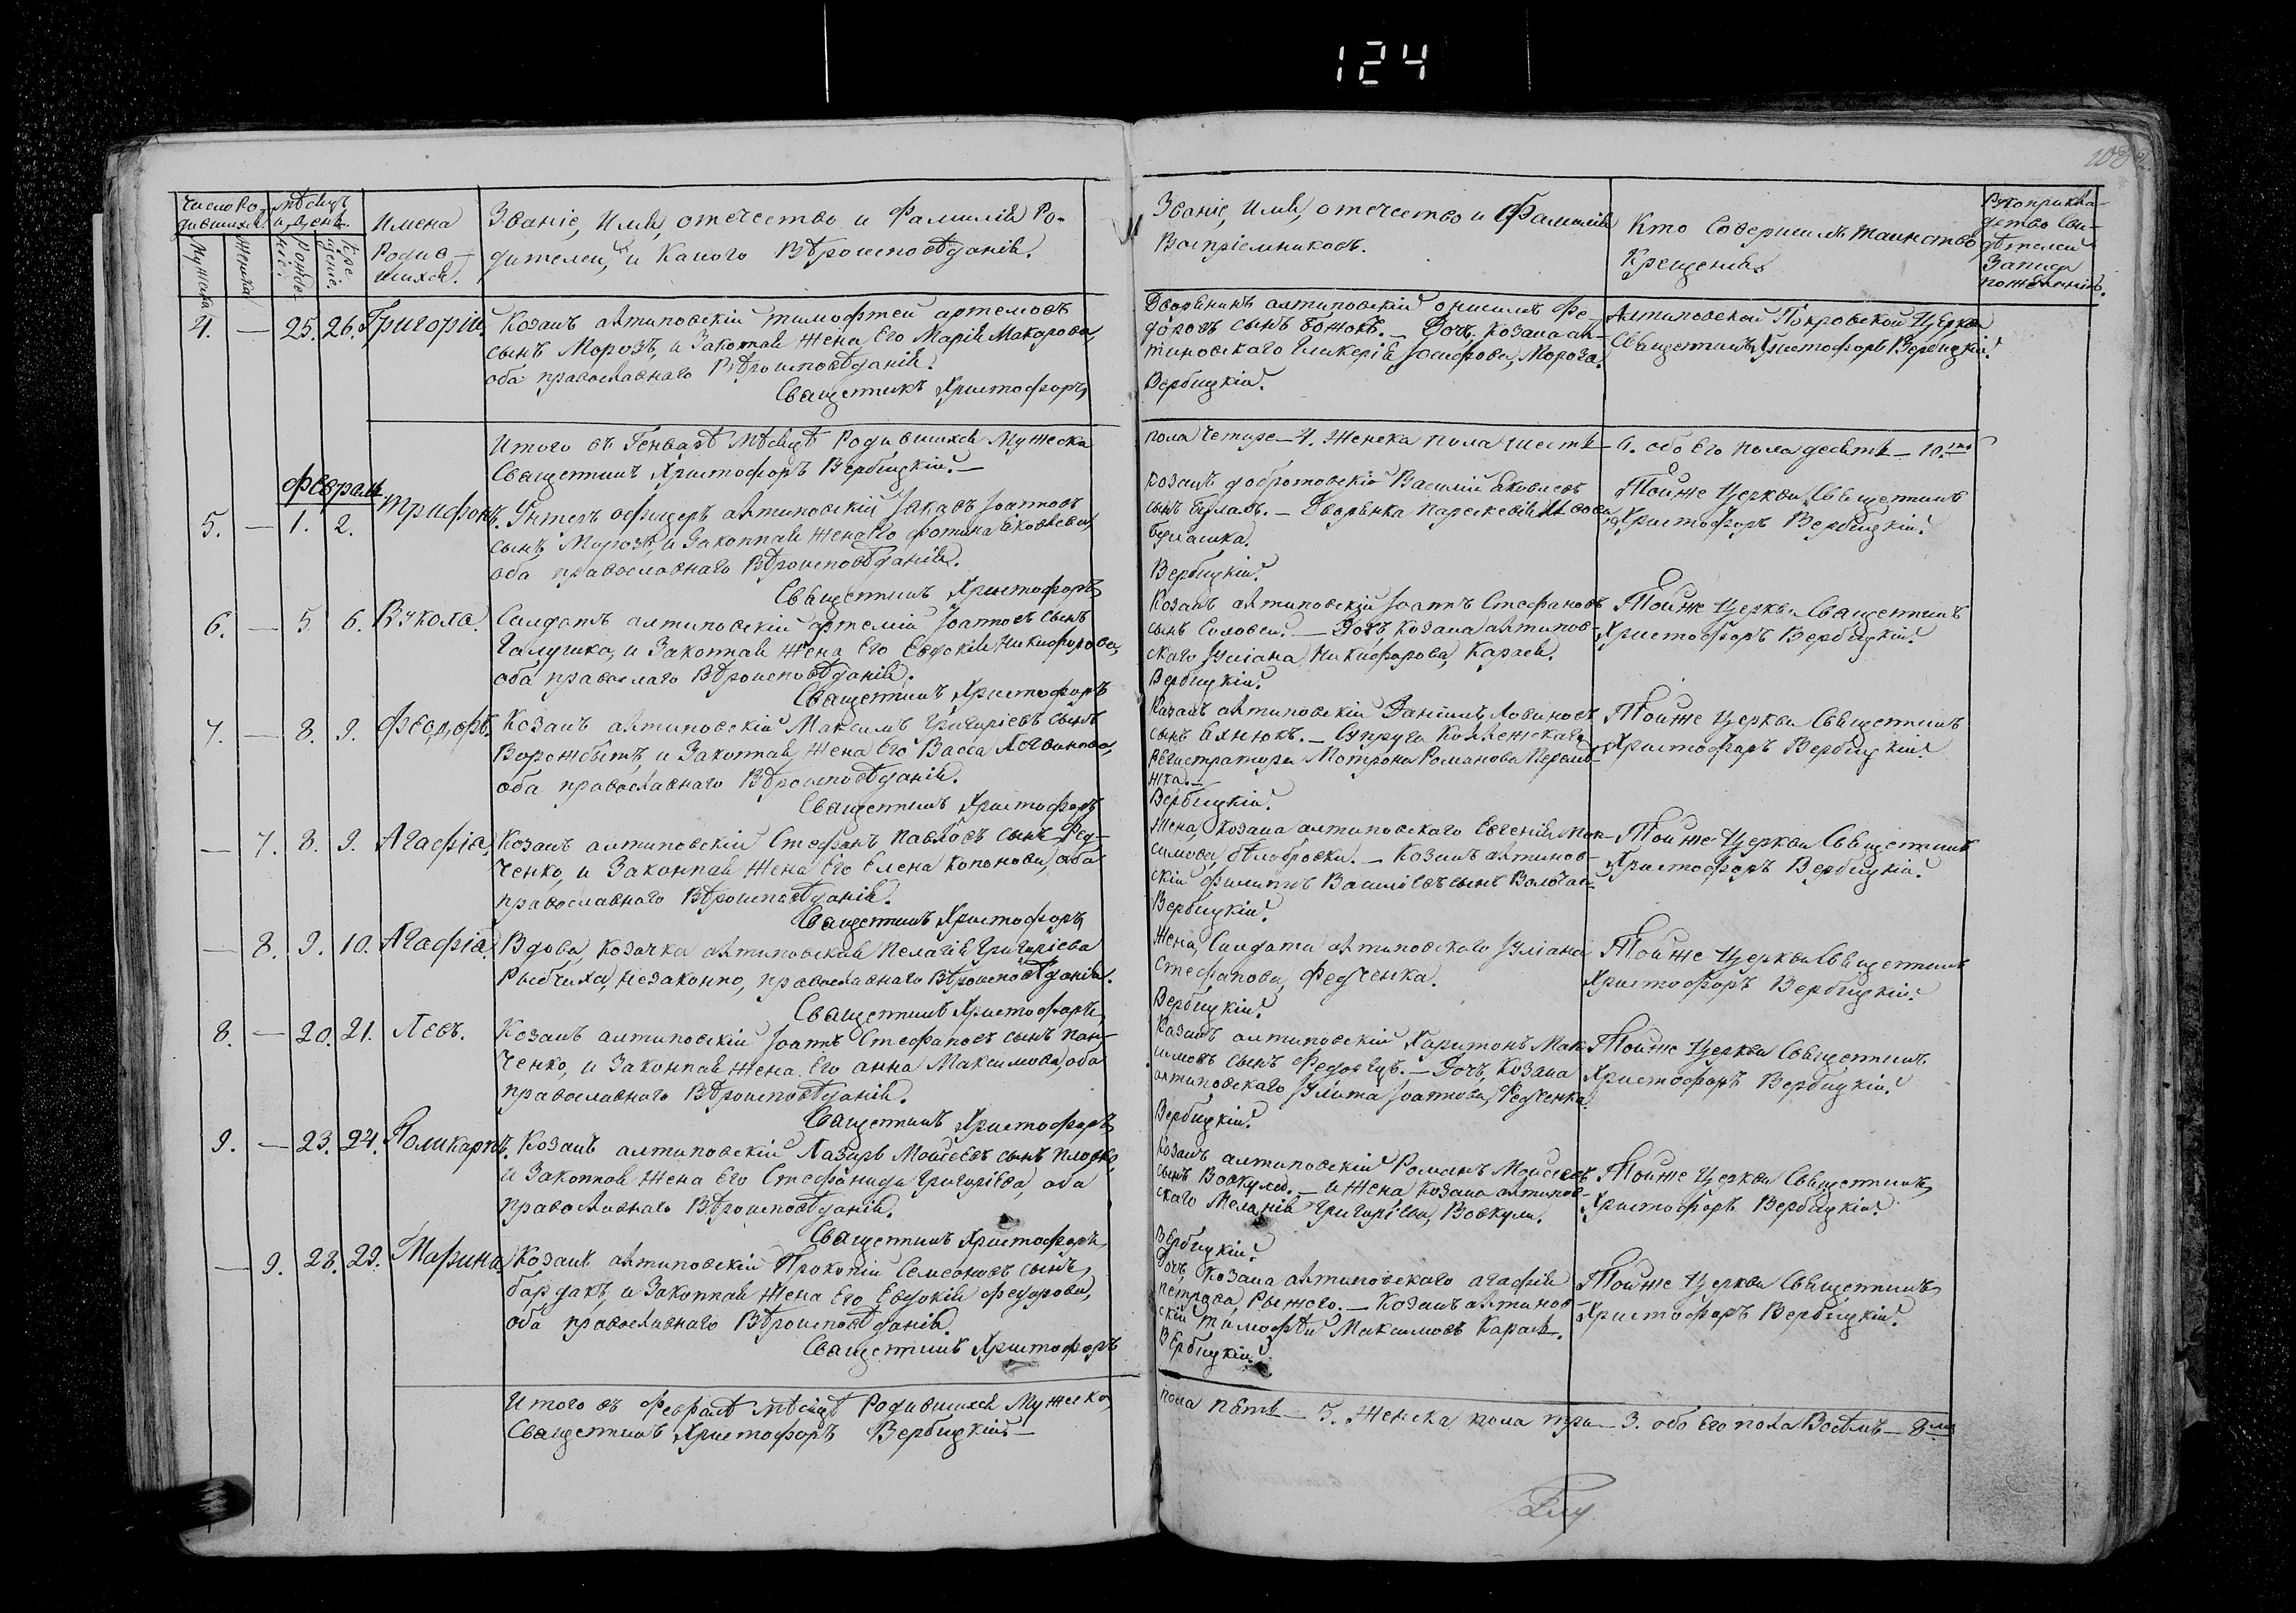 124
108
Число Ро- Мѣсяцъ
дившихся. и день.
Мужеска
Женска
Рожде-
ніе.
Кре-
щеніе.
Имена
Родив-
шихся.
Званіе, Имя, отечество и Фамилія Ро-
дителей, и Какого Вѣроисповѣданія.
Званіе, Имя, отечество и Фамилія
Воспріемниковъ.
Кто Совершилъ таинство
Крещенія
Рукоприкла-
дство Сви-
дѣтелей
Записи
по желанію.
4. — 25. 26. Григорій. Козакъ алтиновскій тимофтей артемовъ
сынъ Морозъ, и Законная жена Его Марія Макарова,
оба православнаго Вѣроисповѣданія.
Священникъ Христофоръ
Дворянинъ алтиновскій онисимъ Фе-
доровъ сынъ Божокъ. — Дочь Козака ал-
тиновскаго Гликерія Іосифова, Мороза.
Вербицкій.
Алтиновской Покровской Церкви
Священникъ Христофоръ Вербицкій.
Итого въ Генварѣ мѣсяцѣ Родившихся Мужеска
Священникъ Христофоръ Вербицкій. —
пола четыре — 4. Женска пола шесть — 6. обо Его пола десять — 10.ть
февраль.
5. — 1. 2. трифонъ. Унтеръ офицеръ алтиновскій Іаковъ Іоанновъ
сынъ Морозъ, и Законная жена Его фотина Яковлева,
оба православнаго Вѣроисповѣданія.
Священникъ Христофоръ
Козакъ добротовскій Василій Яковлевъ
сынъ Булашъ. — Дворянка Параскевія
Булашка.
Вербицкій.
Тойже Церкви Священникъ
Христофоръ Вербицкій.
6. — 5. 6. Вукола. Салдатъ алтиновскій артемій Іоанновъ сынъ
Галушка, и Законная жена Его Евдокія Никифорова,
оба православнаго Вѣроисповѣданія.
Священникъ Христофоръ
Козакъ алтиновскій Іоаннъ Стефановъ
сынъ Соловей. — Дочь Козака алтинов-
скаго Іуліана Никифорова, Карася.
Вербицкій.
Тойже Церкви Священникъ
Христофоръ Вербицкій.
7. — 8. 9. феодоръ. Козакъ алтиновскій Максимъ Григоріевъ сынъ
Ворожбытъ, и Законная жена Его Васса Логвинова,
оба православнаго Вѣроисповѣданія.
Священникъ Христофоръ
Казакъ алтиновскій Даніилъ Ловиновъ
сынъ Яхнюкъ. — Супруга Коллежскаго
Регистратора Мотрона Романова
жка. —
Вербицкій.
Тойже Церкви Священникъ
Христофоръ Вербицкій.
— 7. 8. 9. Агафіа. Козакъ алтиновскій Стефанъ павловъ сынъ Фед-
ченко, и Законная жена Его Елена Кононова, оба
православнаго Вѣроисповѣданія.
Священникъ Христофоръ
Жена Козака алтиновскаго Евгенія Мак-
симова, бѣлобровки. — Козакъ алтинов-
скій филиппъ Василіевъ сынъ
Вербицкій.
Тойже Церкви Священникъ
Христофоръ Вербицкій.
— 8. 9. 10. Агафіа. Вдова, Козачка алтиновская Пелагія Григоріева
Рыбчиха, незаконно, православнаго Вѣроисповѣданія.
Священникъ Христофоръ
Жена Салдата алтиновскаго Іуліана
Стефанова, Федченка.
Вербицкій.
Тойже Церкви Священникъ
Христофоръ Вербицкій.
8. — 20. 21. Левъ. Козакъ алтиновскій Іоаннъ Стефановъ сынъ пан-
ченко, и Законная жена Его анна Максимова, оба
православнаго Вѣроисповѣданія.
Священникъ Христофоръ
Казакъ алтиновскій Харитонъ Мак-
симовъ сынъ — Дочь Козака
алтиновскаго Іулита Іоаннова, Федченка.
Вербицкій.
Тойже Церкви Священникъ
Христофоръ Вербицкій.
9. — 23. 24. Поликарпъ. Козакъ алтиновскій Лазарь Моисеевъ сынъ
и Законная жена Его Стефанида Григоріева, оба
православнаго Вѣроисповѣданія.
Священникъ Христофоръ
Козакъ алтиновскій Романъ Моисеевъ
сынъ — и Жена Козака алтинов-
скаго Меланія Григоріева, Вовкули.
Вербицкій.
Тойже Церкви Священникъ
Христофоръ Вербицкій.
— 9. 28. 29. Марина. Козакъ алтиновскій Прокопій Семеоновъ сынъ
бардакъ, и Законная жена Его Евдокія федорова,
оба православнаго Вѣроисповѣданія.
Священникъ Христофоръ
Дочь Козака алтиновскаго агафія
петрова, Рыжого. — Козакъ алтинов-
скій тимофѣй Максимовъ Карась.
Вербицкій.
Тойже Церкви Священникъ
Христофоръ Вербицкій.
Итого въ февралѣ мѣсяцѣ Родившихся Мужеска
Священникъ Христофоръ Вербицкій —
пола пять — 5. Женска пола три — 3. обо Его пола Восѣмь — 8.мь